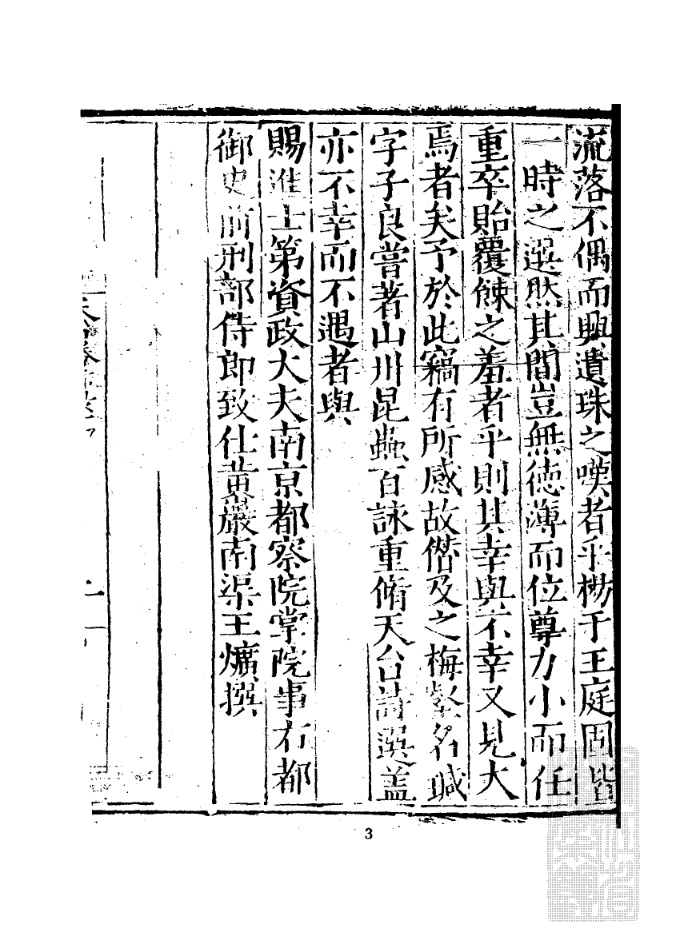 流落不偶而興遺珠之嘆者乎楊于王庭固皆
一時之選然其間豈無徳薄而位尊力小而任
重卒貽覆餗之羞者乎則其幸與不幸又見大
焉者矣予於此竊有所感故僣及之梅壑名瑊
字子良嘗著山川昆蟲百詠重脩天台詩選盖
亦不幸而不遇者與
賜進士第資政大夫南京都察院掌院事右都
御史前刑部侍郎致仕黄巖南渠王爌撰
3